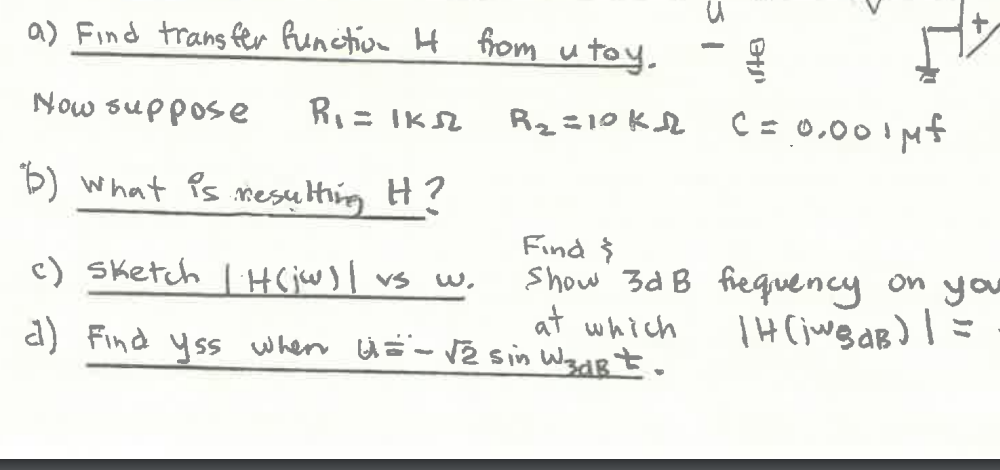 u
a) Find transfer function H from u to y.
−
+
Now suppose R₁ = 1KΩ R₂ = 10 KΩ C = 0.001 μf
b) What is resulting H?
Find &
c) Sketch |H(jω)| vs ω. Show 3dB frequency on you
at which |H(jω3dB)| =
d) Find yss when u = -√2 sin ω3dB t.